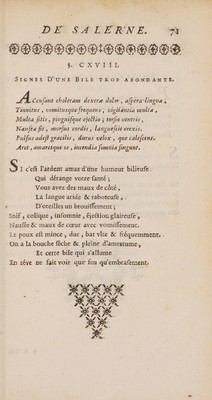 DE SALERNE. 71
§. CXVIII.
SIGNES D'UNE BILE TROP ABONDANTE.
Accusant choleram dextræ dolor, aspera lingua,
Tinnitus, vomitusque frequens, vigilantia multa,
Multa sitis, pinguisque ejectio; torsio ventris,
Nausea fit, morsus cordis, languescit orexis.
Pulsus adest gracilis, durus velox, que calescens.
Aret, amaretque os, incendia somnia fingunt.
SI c'est l'ardent amas d'une humeur bilieuse
Qui dérange votre santé;
Vous avez des maux de côté,
La langue aride & raboteuse,
D'oreilles un brouissement;
Soif, colique, insomnie, éjection glaireuse,
Nausée & maux de cœur avec vomissement.
Le poux est mince, dur, bat vîte & fréquemment.
On a la bouche séche & pleine d'amertume,
Et cette bile qui s'allume
En rêve ne fait voir que feu qu'embrasement.